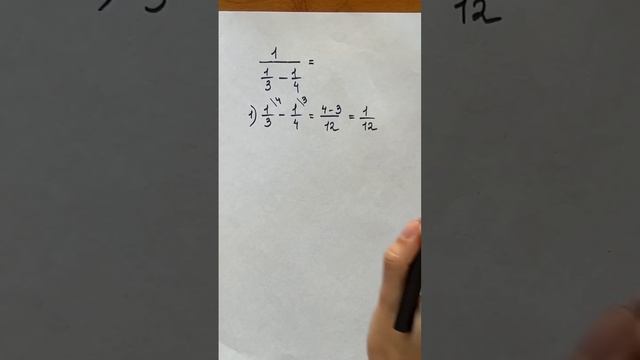 1/(1/3 - 1/4) =
1) 1/3 \4 - 1/4 \3 = (4-3)/12 = 1/12